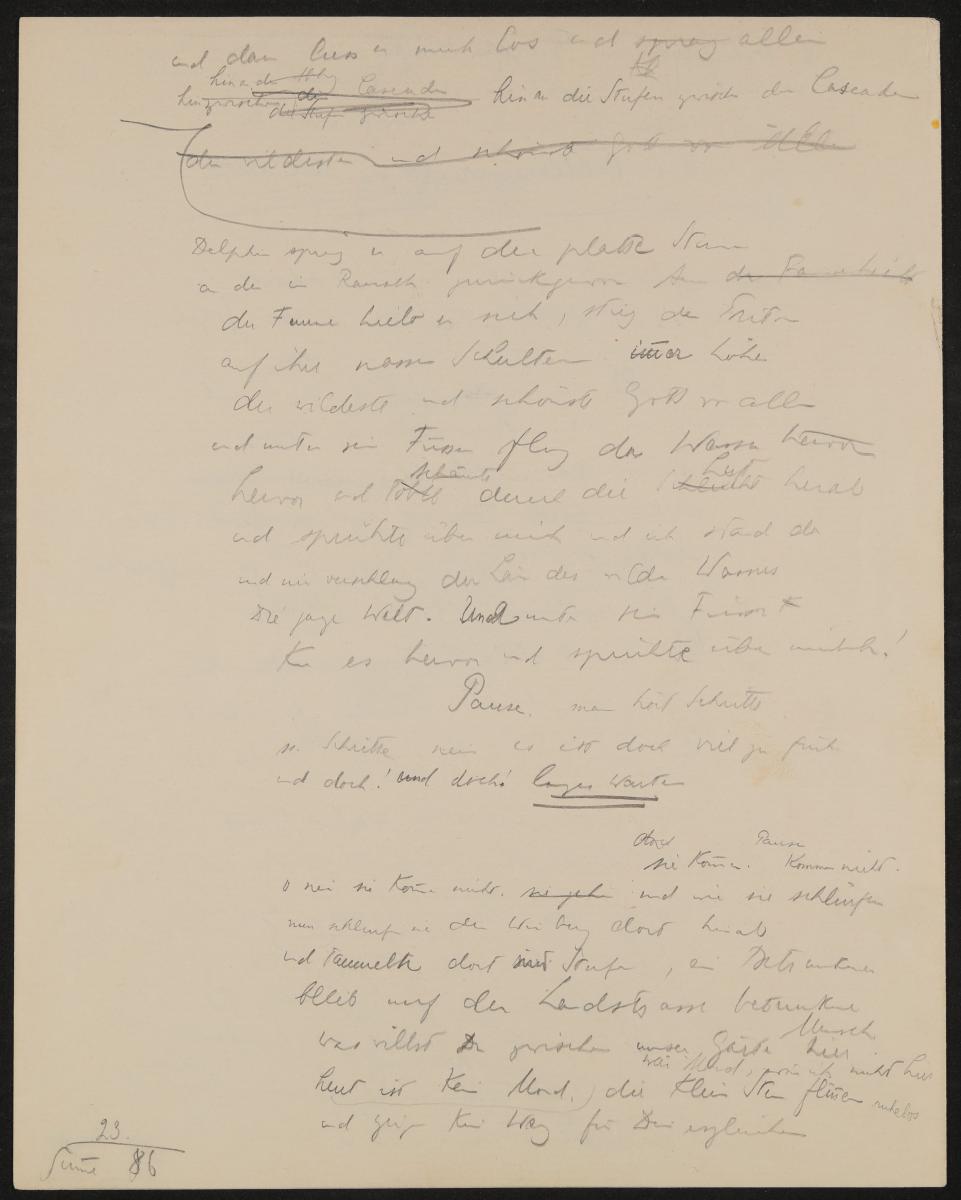 und dann liess er mich los und sprang allein
hin an die Stufen zwischen den Cascaden
hinzwischen die Cascaden
die Stufen zwischen
den wildesten und schönste Gott von allen
Delphin sprang er auf den platte Stein
an den im Rausch zurückgeworfen
der Faune hielt er sich, stieg den Triton
auf ihre nassen Schultern immer höher
der wildeste und schönste Gott von allen
und unter sein Füssen flog das Wasser hervor
schäumte Luft
hervor und tobte durch die herab
und sprühte über mich und ich stand da
und mir verschlang der Lärm des wilden Wassers
Die ganze Welt. Und unter sein Füssen
kam es hervor und sprühte über mich!
Pause. man hört Schritte
st. Schritte nein es ist doch viel zu früh
und doch! und doch! langes Warten
doch Pause
sie kommen. Kommen nicht.
o nein sie kommen nicht. sie gehen und wie sie schlürfen
nun schlürfen sie den Weinberg dort hinab
und taumelte dort sind Stufen, ein Betrunkener
bleib auf der Landstrasse betrunkener
Mensch
was willst Du zwischen unser Gärten hier
wär Mond, wär ich nicht hier
heut ist kein Mond. die klein Stern flimmern ruhelos
und zeigen kein Weg für Deinesgleichen
23.
86